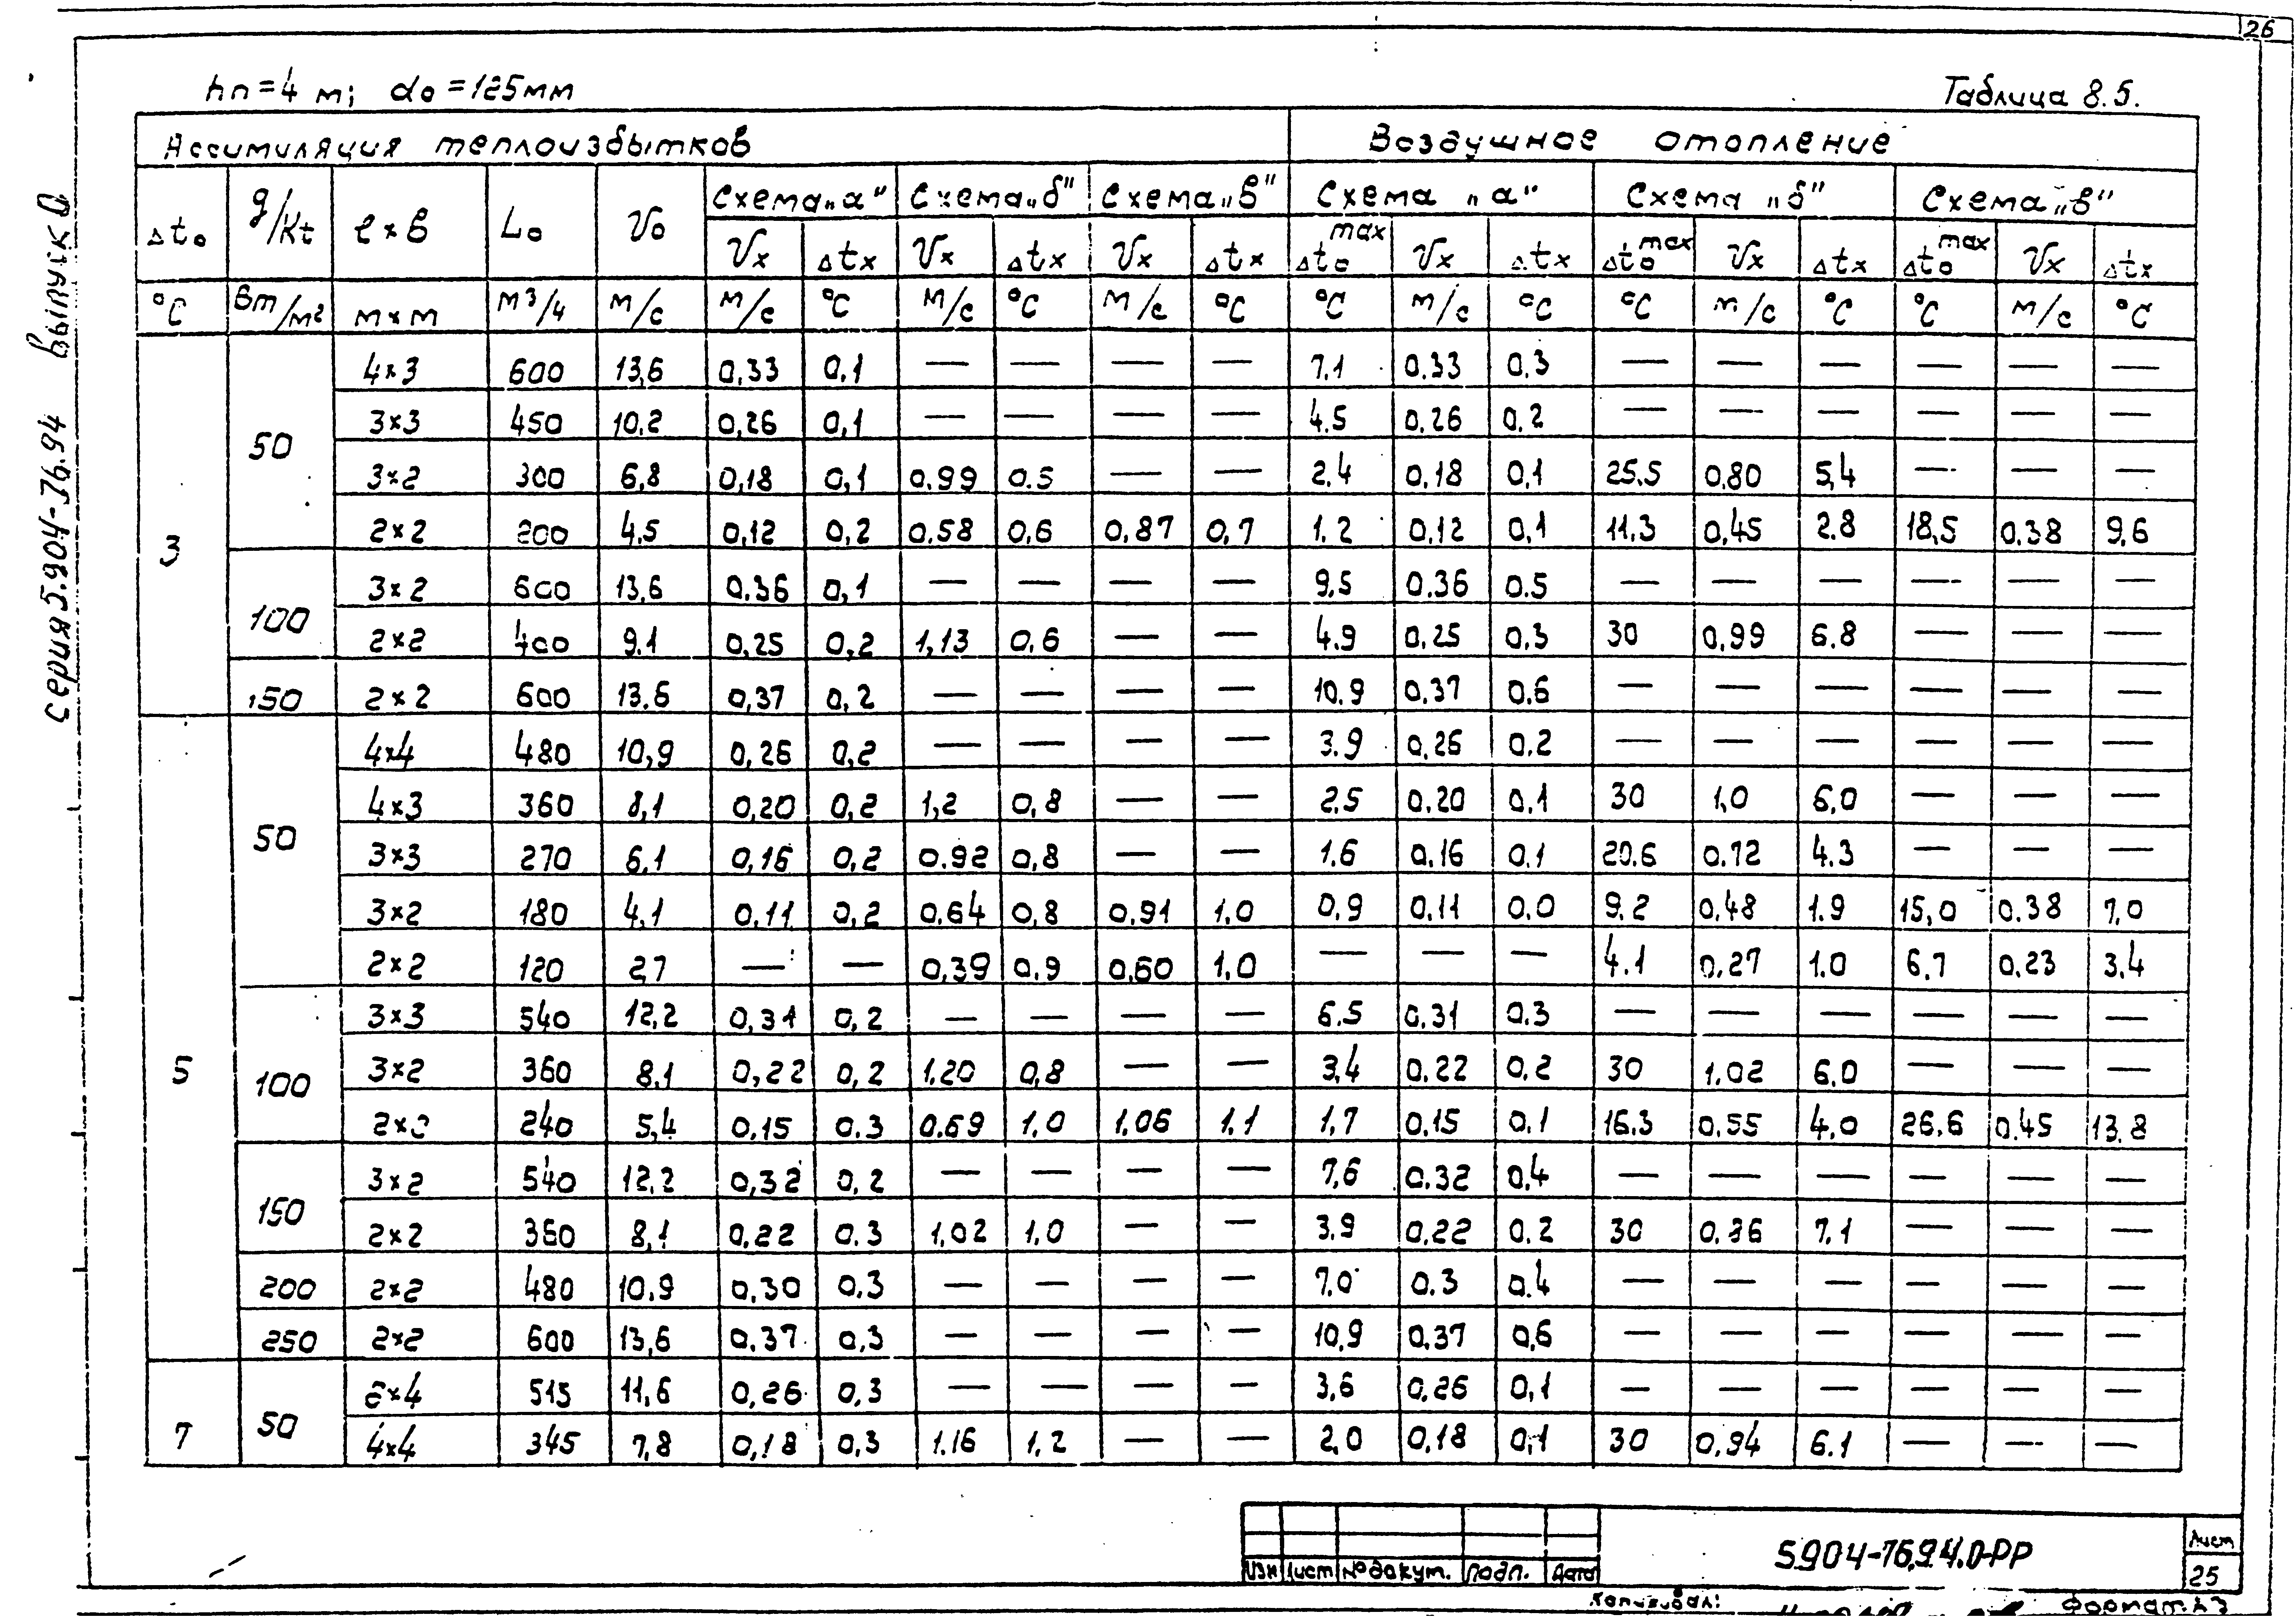 26
hп=4 м; do=125мм
Таблица 8.5.
серия 5.904-76.94 выпуск 0
Ассимиляция теплоизбытков | Воздушное отопление
Δto | q/Kt | l×b | Lo | Vo | Схема „а" | Схема „б" | Схема „в" | Схема „а" | Схема „б" | Схема „в"
Vx | Δtx | Vx | Δtx | Vx | Δtx | Δto max | Vx | Δtx | Δto max | Vx | Δtx | Δto max | Vx | Δtx
°C | Вт/м² | м×м | м³/ч | м/с | м/с | °C | м/с | °C | м/с | °C | °C | м/с | °C | °C | м/с | °C | °C | м/с | °C
3 | 50 | 4×3 | 600 | 13,6 | 0,33 | 0,1 | — | — | — | — | 7.1 | 0.33 | 0.3 | — | — | — | — | — | —
3×3 | 450 | 10,2 | 0,26 | 0,1 | — | — | — | — | 4.5 | 0,26 | 0,2 | — | — | — | — | — | —
3×2 | 300 | 6,8 | 0,18 | 0,1 | 0.99 | 0.5 | — | — | 2.4 | 0,18 | 0,1 | 25.5 | 0,80 | 5,4 | — | — | —
2×2 | 200 | 4,5 | 0,12 | 0,2 | 0.58 | 0,6 | 0,87 | 0,7 | 1.2 | 0,12 | 0,1 | 11.3 | 0,45 | 2.8 | 18,5 | 0.38 | 9,6
100 | 3×2 | 600 | 13,6 | 0.36 | 0,1 | — | — | — | — | 9,5 | 0.36 | 0.5 | — | — | — | — | — | —
2×2 | 400 | 9.1 | 0,25 | 0,2 | 1,13 | 0,6 | — | — | 4.9 | 0,25 | 0,3 | 30 | 0,99 | 6.8 | — | — | —
150 | 2×2 | 600 | 13.6 | 0,37 | 0,2 | — | — | — | — | 10.9 | 0,37 | 0.6 | — | — | — | — | — | —
5 | 50 | 4×4 | 480 | 10,9 | 0,26 | 0,2 | — | — | — | — | 3.9 | 0,26 | 0.2 | — | — | — | — | — | —
4×3 | 360 | 8,1 | 0,20 | 0,2 | 1,2 | 0,8 | — | — | 2,5 | 0.20 | 0.1 | 30 | 1,0 | 6,0 | — | — | —
3×3 | 270 | 6,1 | 0,16 | 0,2 | 0.92 | 0,8 | — | — | 1.6 | 0.16 | 0.1 | 20.6 | 0.72 | 4.3 | — | — | —
3×2 | 180 | 4,1 | 0,11 | 0,2 | 0,64 | 0,8 | 0,91 | 1,0 | 0,9 | 0,11 | 0.0 | 9.2 | 0,48 | 1.9 | 15,0 | 0.38 | 7,0
2×2 | 120 | 2,7 | — | — | 0,39 | 0,9 | 0,60 | 1,0 | — | — | — | 4.1 | 0,27 | 1.0 | 6,7 | 0,23 | 3,4
100 | 3×3 | 540 | 12,2 | 0,31 | 0,2 | — | — | — | — | 6.5 | 0,31 | 0.3 | — | — | — | — | — | —
3×2 | 360 | 8,1 | 0,22 | 0,2 | 1,20 | 0,8 | — | — | 3,4 | 0.22 | 0,2 | 30 | 1,02 | 6,0 | — | — | —
2×2 | 240 | 5,4 | 0,15 | 0.3 | 0.69 | 1,0 | 1,06 | 1,1 | 1,7 | 0,15 | 0.1 | 16.3 | 0,55 | 4,0 | 26.6 | 0.45 | 13.8
150 | 3×2 | 540 | 12,2 | 0,32 | 0,2 | — | — | — | — | 7,6 | 0.32 | 0,4 | — | — | — | — | — | —
2×2 | 360 | 8,1 | 0,22 | 0.3 | 1,02 | 1,0 | — | — | 3,9 | 0,22 | 0,2 | 30 | 7.1 | — | — | —
200 | 2×2 | 480 | 10.9 | 0,30 | 0,3 | — | — | — | — | 7,0 | 0.3 | 0.4 | — | — | — | — | — | —
250 | 2×2 | 600 | 13,6 | 0,37 | 0,3 | — | — | — | — | 10,9 | 0,37 | 0,6 | — | — | — | — | — | —
7 | 50 | 6×4 | 515 | 11,6 | 0,26 | 0,3 | — | — | — | — | 3,6 | 0,26 | 0,1 | — | — | — | — | — | —
4×4 | 345 | 7,8 | 0,18 | 0,3 | 1.16 | 1,2 | — | — | 2,0 | 0,18 | 0,1 | 30 | 0,94 | 6.1 | — | — | —
Изм Лист № докум. Подп. Дата
5.904-76.94.0-РР
Лист
25
Копировал:
Формат А3